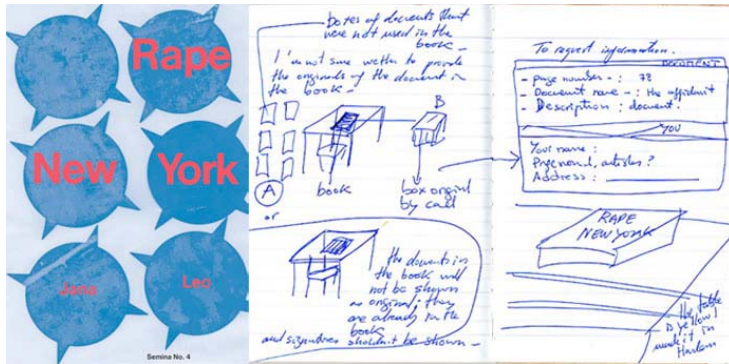 Rape
New York
Jana Leo
Semina No. 4
botes of documents that
were not used in the
book -
I'm not sure wether to provide
the originals of the document in
the book -
B
A
book
box original
by call
or
the documents in
the book will
not be shown
as original; they
are already in the
book
and signatures shouldn't be shown -
To request information.
DOCUMENT
- page number - : 78
- Document name - : the affidavit
- Description : document.
YOU
Your name :
Pressional, articles?
Address :
RAPE
NEW YORK
the table
is yellow
made it in
Harlem